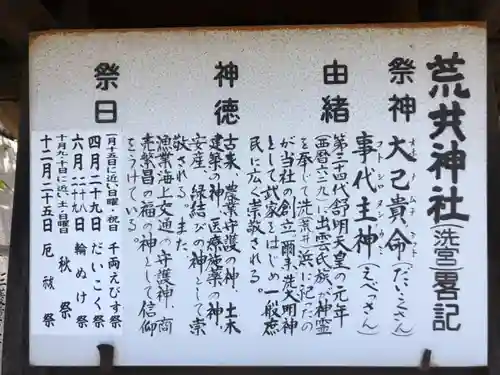 荒井神社(洗宮)畧記
祭神
大己貴命(だいこくさん)
オオナムチノミコト
事代主神(えべっさん)
コトシロヌシノカミ
由緒
第三十四代舒明天皇の元年
(西暦六二九)に出雲氏族が神霊
を奉じて洗荒井浜に祀ったの
が当社の創立、爾来洗大明神
として武家をはじめ一般庶
民に広く崇敬される。
神徳
古来、農業守護の神、土木
建築の神、医療施薬の神、
安産、縁結びの神として崇
敬される。また、
漁業海上交通の守護神、商
売繁昌の福の神として信仰
をうけている。
祭日
一月十五日に近い日曜・祝日 千両えびす祭
四月二十九日 だいこく祭
六月二十九日 輪ぬけ祭
十月九・十日に近い土・日曜日 秋祭
十二月二十五日 厄祓祭